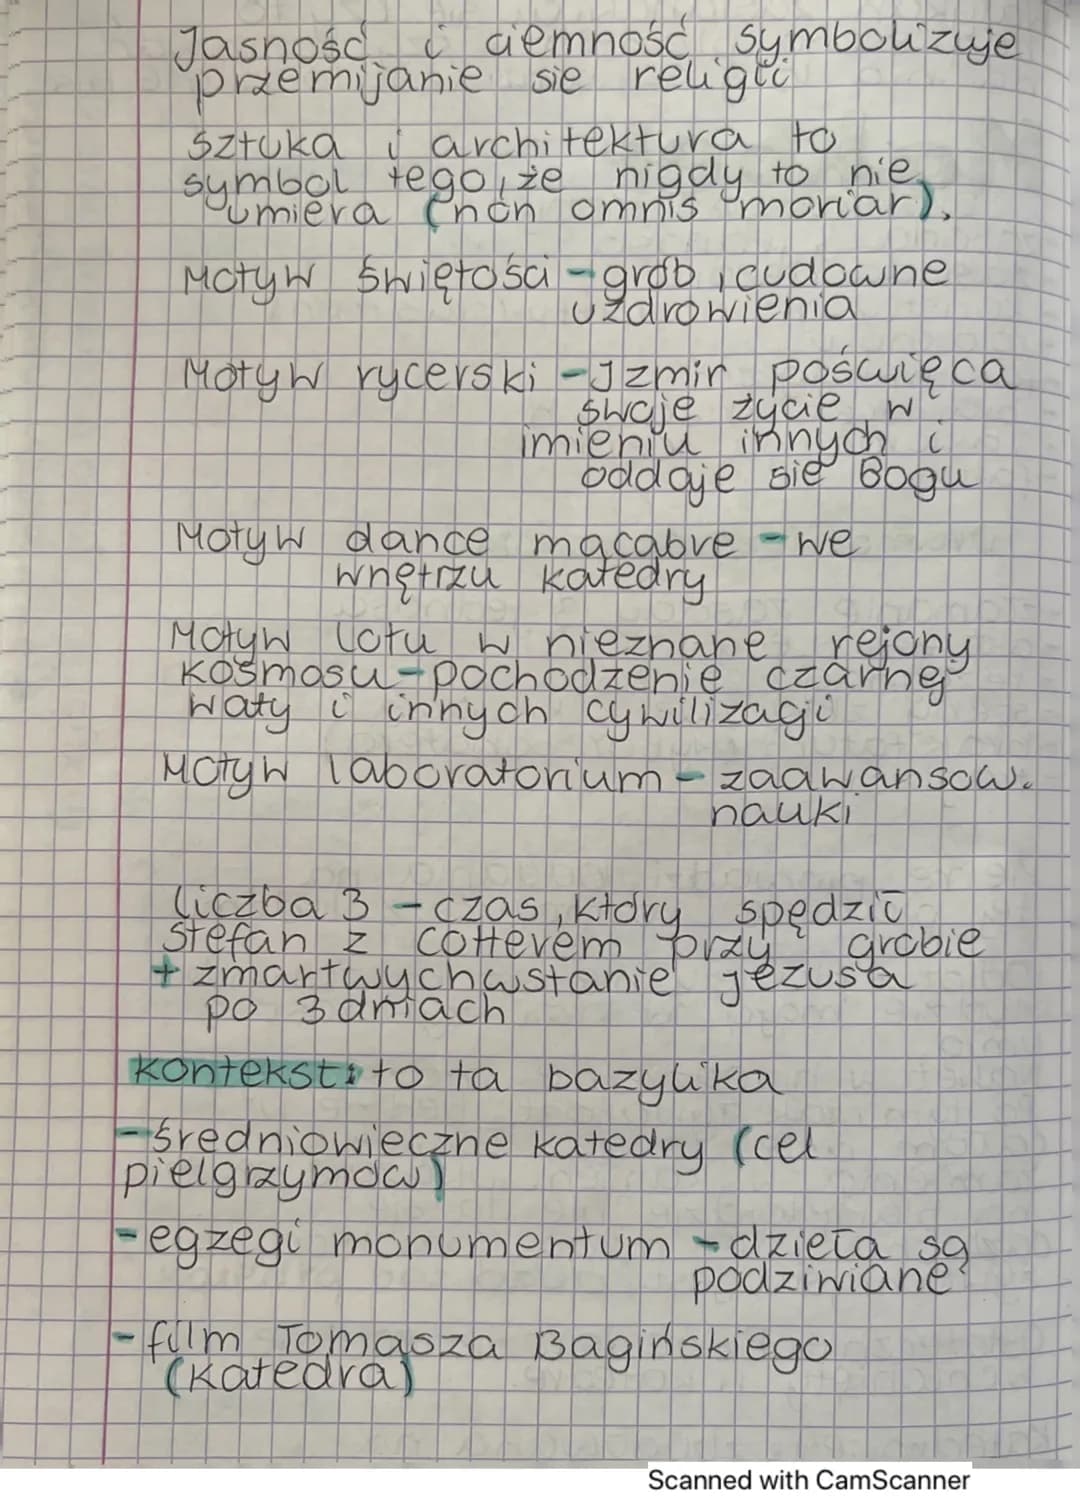 Jasność i ciemność symbolizuje
przemijanie sie religii
Sztuka i architektura to
symbol tego, że nigdy to nie
umiera (non omnis moriar).
Motyw świętości - grób, cudowne
uzdrowienia
Motyw rycerski - Izmir poświęca
swoje życie w
imieniu innych i
oddaje sie Bogu
Motyw dance macabre - we
wnętrzu katedry
Motyw lotu w nieznane rejony
kosmosu - pochodzenie czarnej
waty i innych cywilizacji
Motyw laboratorium - zaawansow.
nauki
Liczba 3 - czas, który spędził
Stefan z Cotterem przy grobie
+ zmartwychwstanie Jezusa
po 3 dniach
Kontekst: to ta bazylika
- średniowieczne katedry (cel
pielgrzymów)
- egzegi monumentum - dzieła są
podziwiane
- film Tomasza Bagińskiego
(Katedra)
Scanned with CamScanner